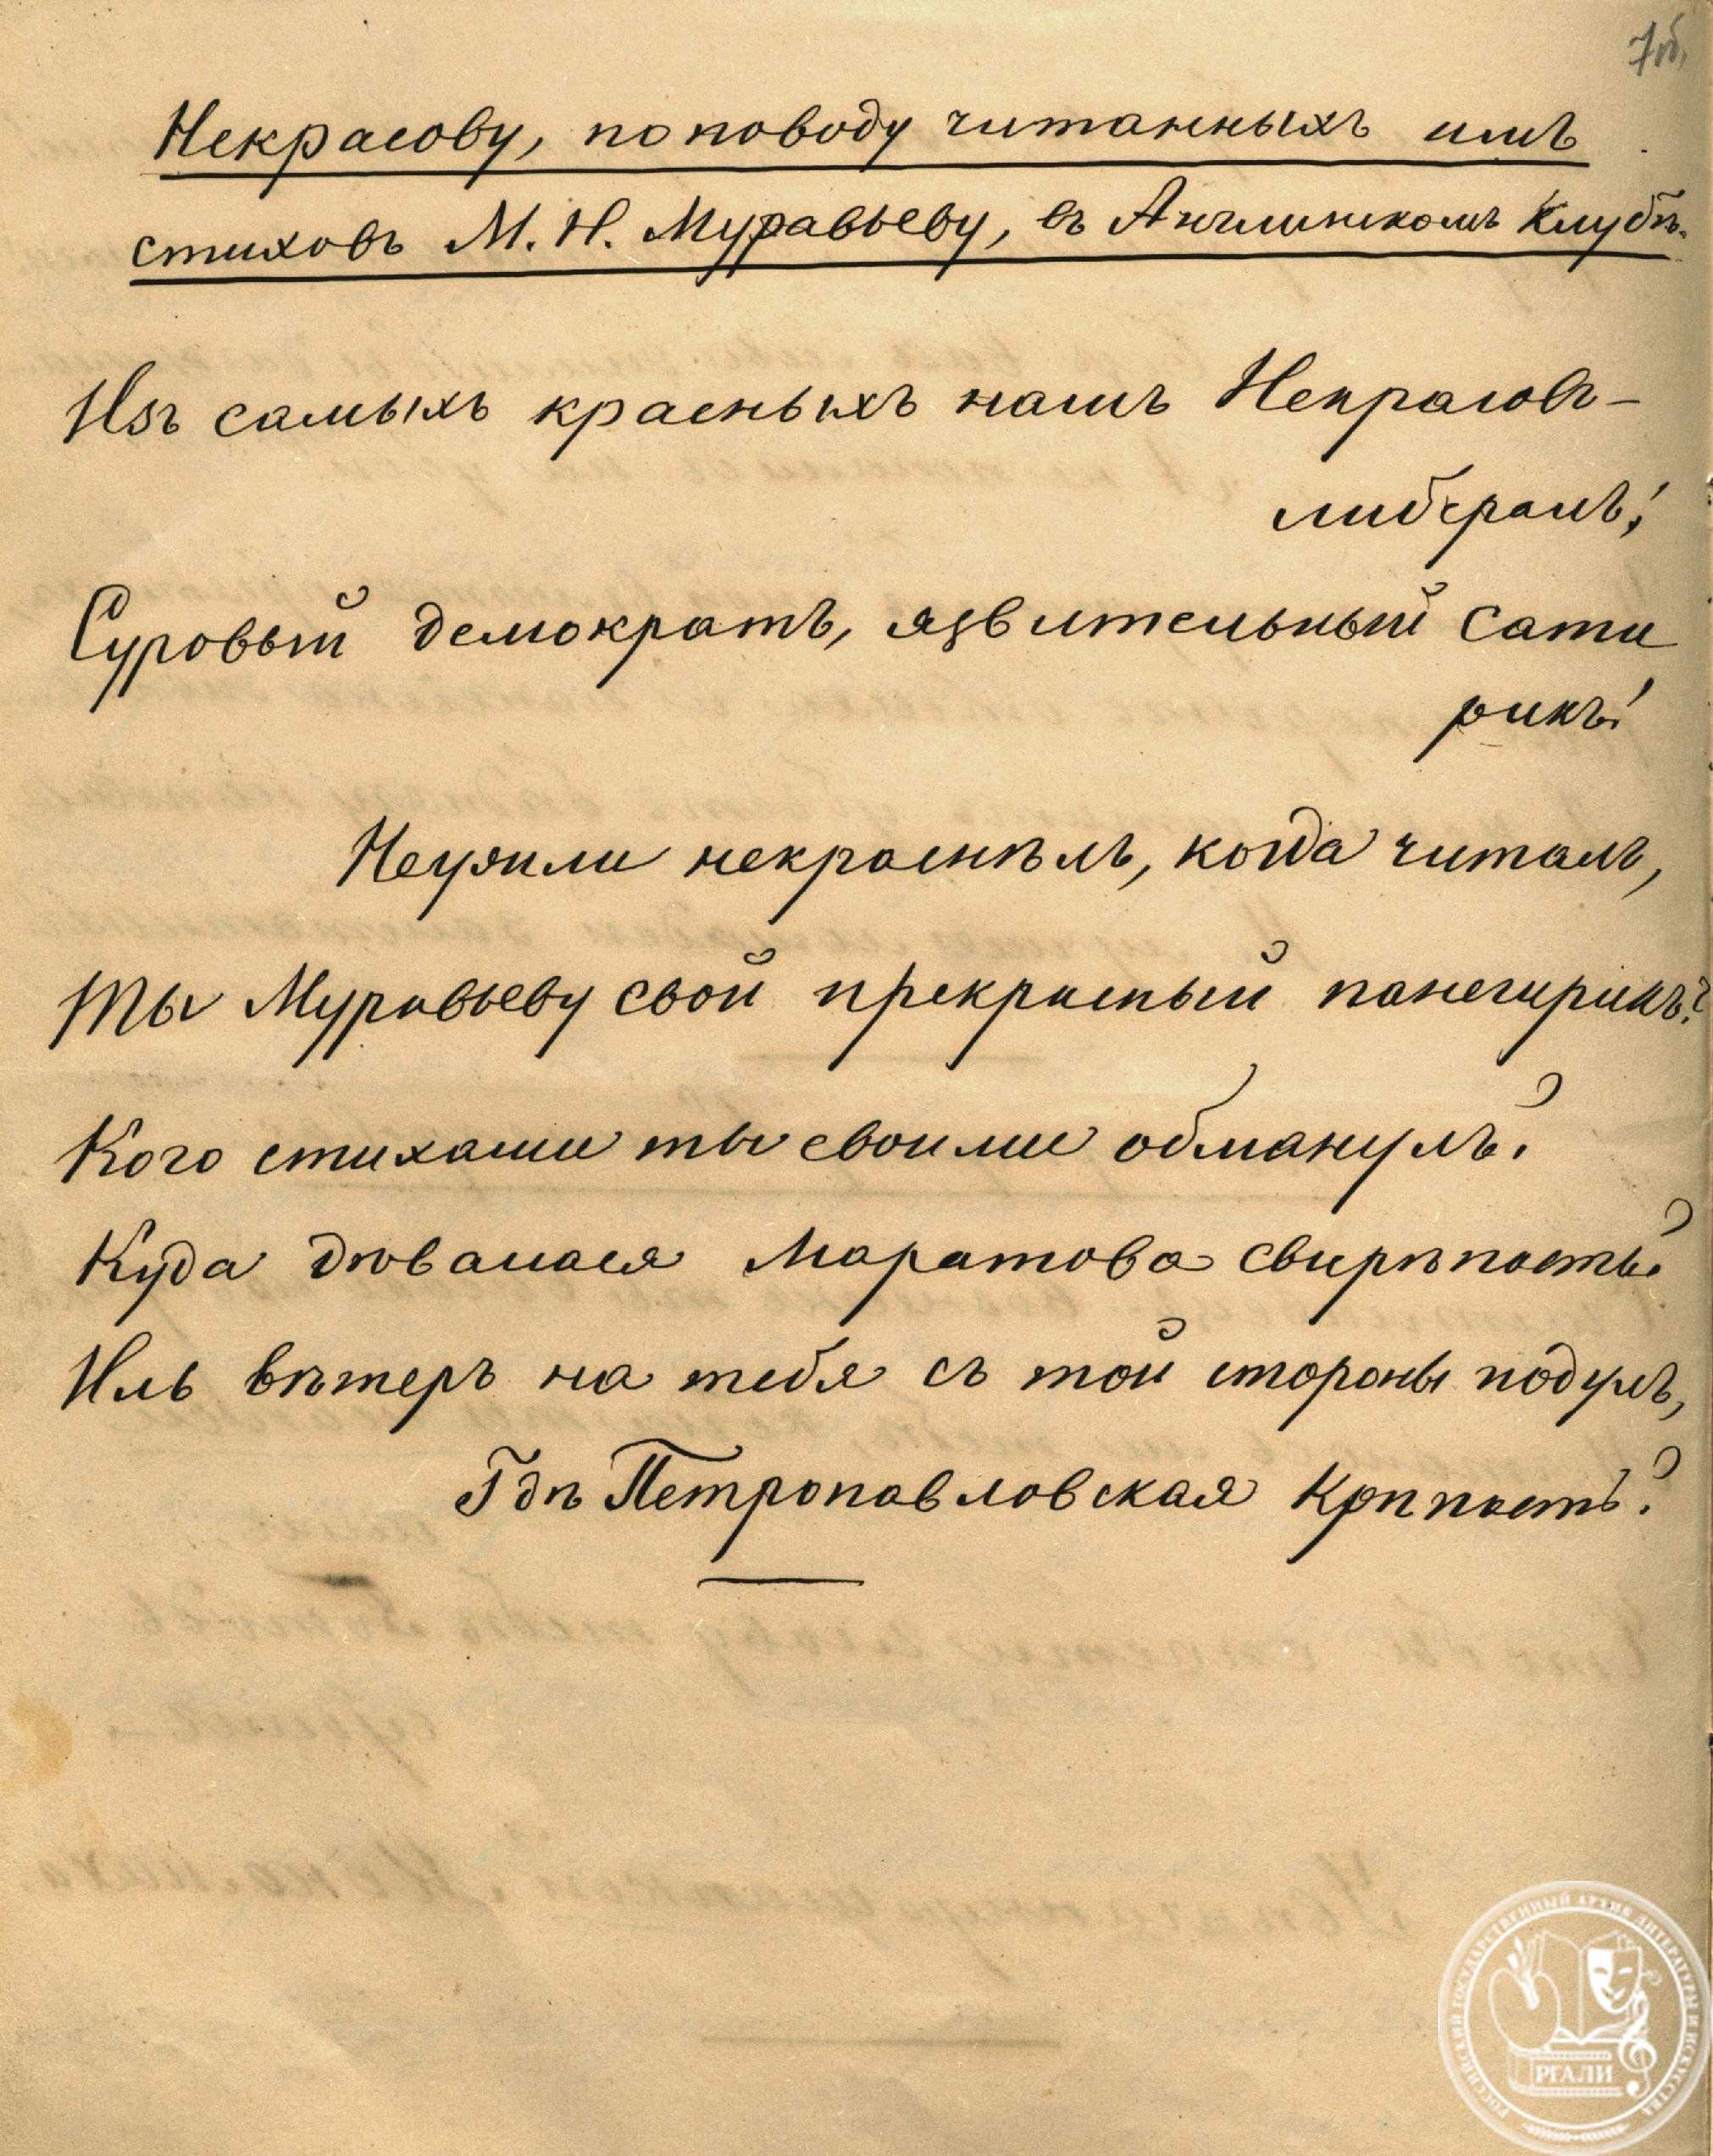 7об.
Некрасову, по поводу читанныхъ имъ
стиховъ М. Н. Муравьеву, въ Англинскомъ Клубѣ.
Изъ самыхъ красныхъ нашъ Некрасовъ –
либералъ!
Суровый демократъ, язвительный сати
рикъ!
Неужли некраснѣлъ, когда читалъ,
Ты Муравьеву свой прекрасный панегирикъ?
Кого стихами ты своими обманулъ?
Куда дѣвалася Маратова свирѣпость?
Иль вѣтеръ на тебя съ той стороны подулъ,
Гдѣ Петропавловская Крѣпость?
РОССИЙСКИЙ ГОСУДАРСТВЕННЫЙ АРХИВ ЛИТЕРАТУРЫ И ИСКУССТВА
РГАЛИ